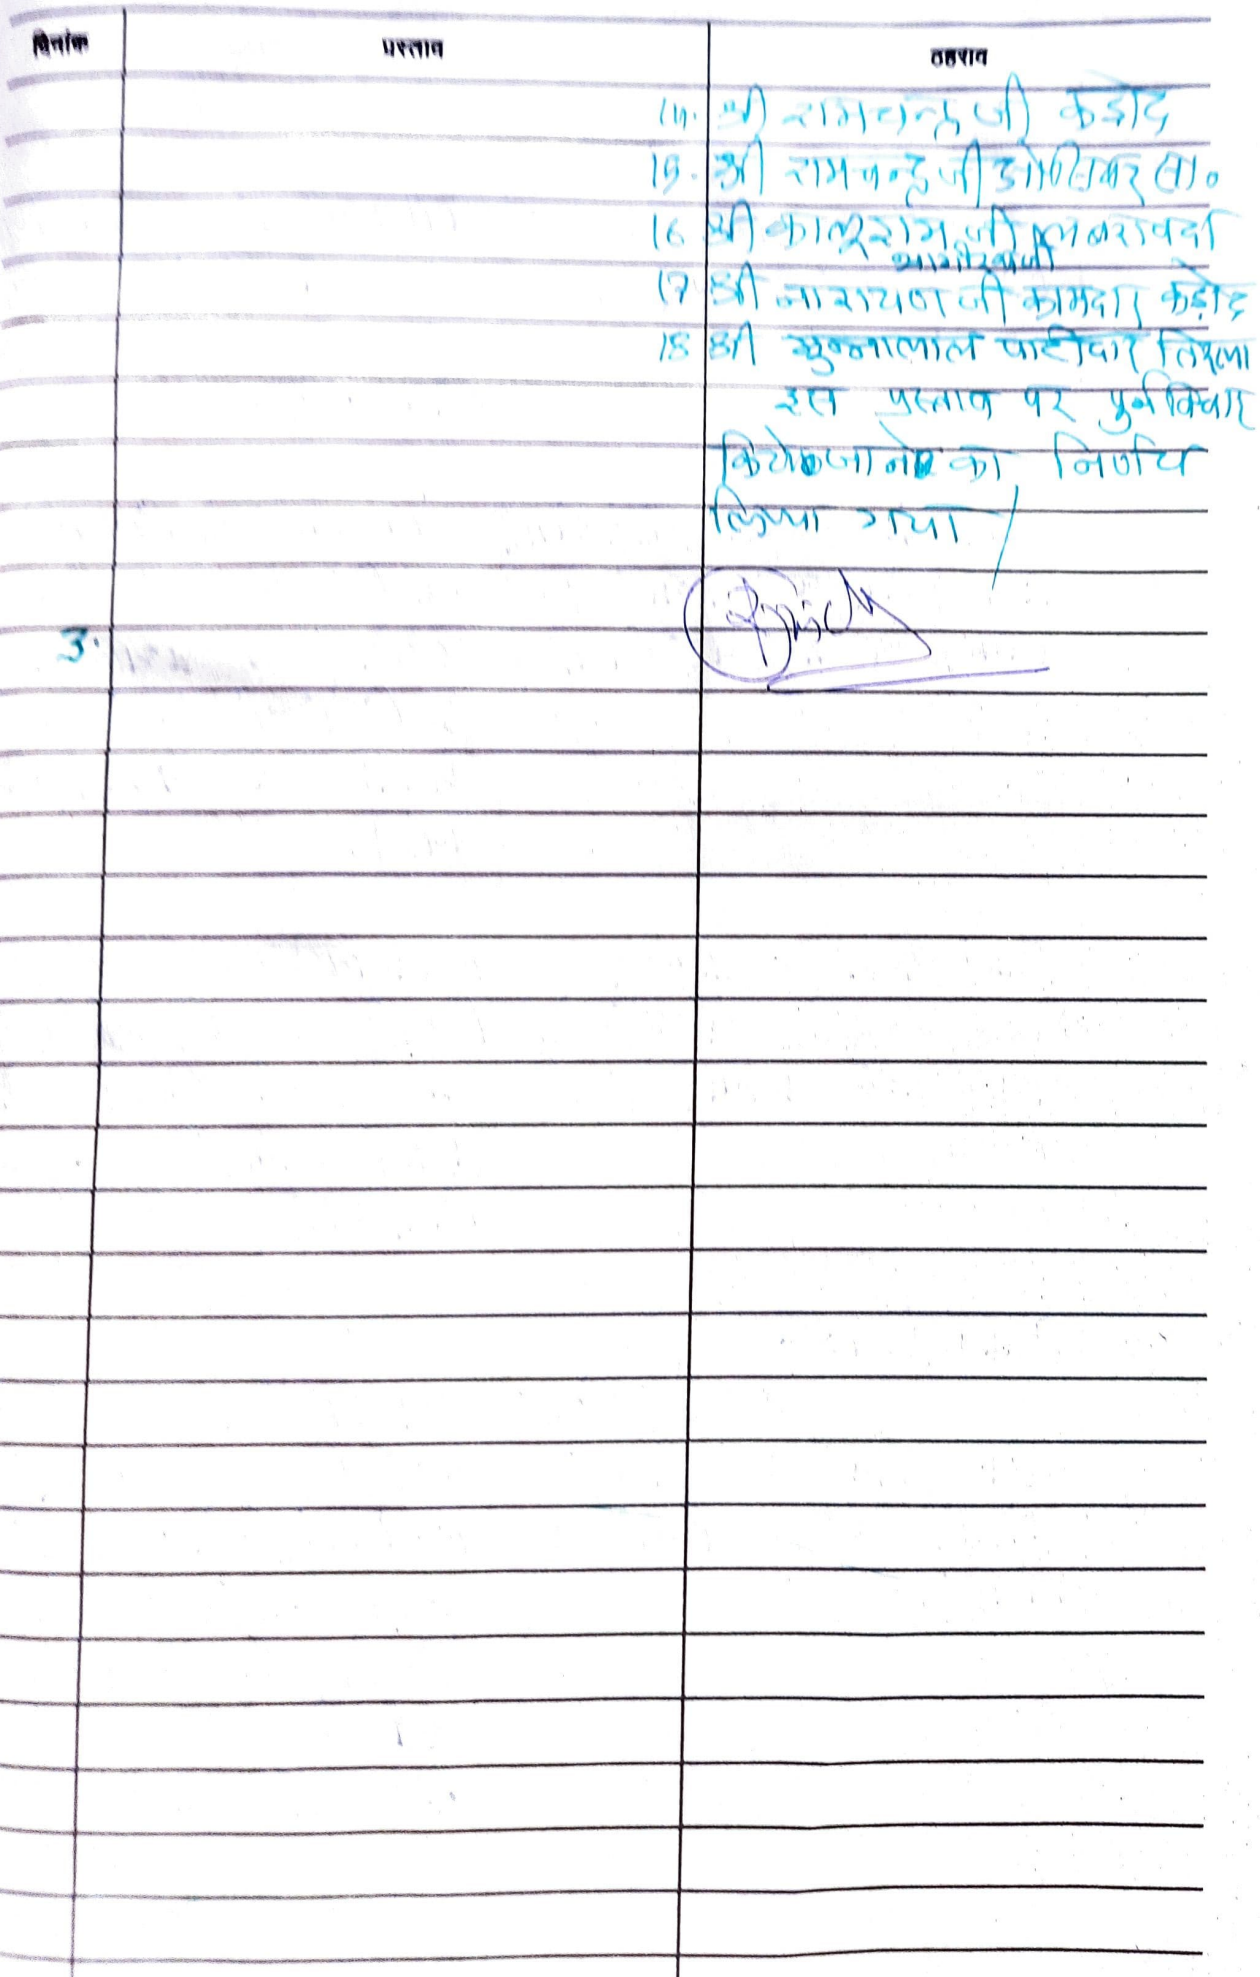 दिनांक प्रस्ताव ठहराव
14. श्री रामचन्द्र जी कडोद
15. श्री रामचन्द्र जी सा०
16 श्री कालूराम जी
17 श्री नारायण जी कामदार कड़ोद
18 श्री मुन्नालाल पाटीदार तिरला
इस प्रस्ताव पर पुर्न विचार
किये जाने का निर्णय
लिया गया /
3.